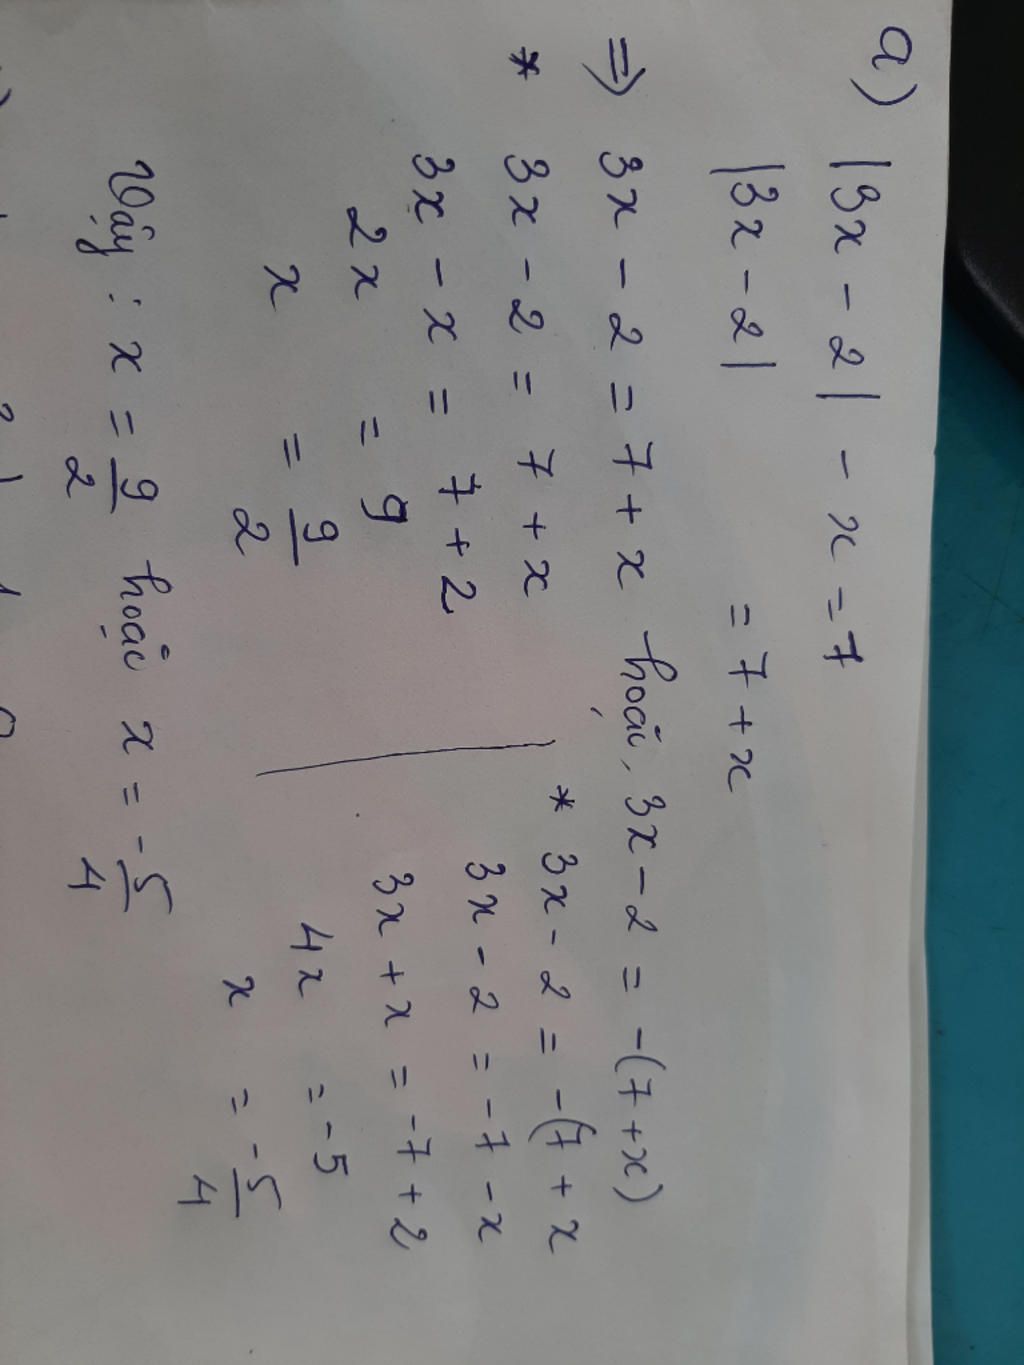 a) |3x - 2| - x = 7
|3x - 2| = 7 + x
⇒ 3x - 2 = 7 + x hoặc, 3x - 2 = -(7 + x)
* 3x - 2 = 7 + x
3x - x = 7 + 2
2x = 9
x = 9/2
* 3x - 2 = -(7 + x
3x - 2 = -7 - x
3x + x = -7 + 2
4x = -5
x = -5/4
Vậy : x = 9/2 hoặc x = -5/4